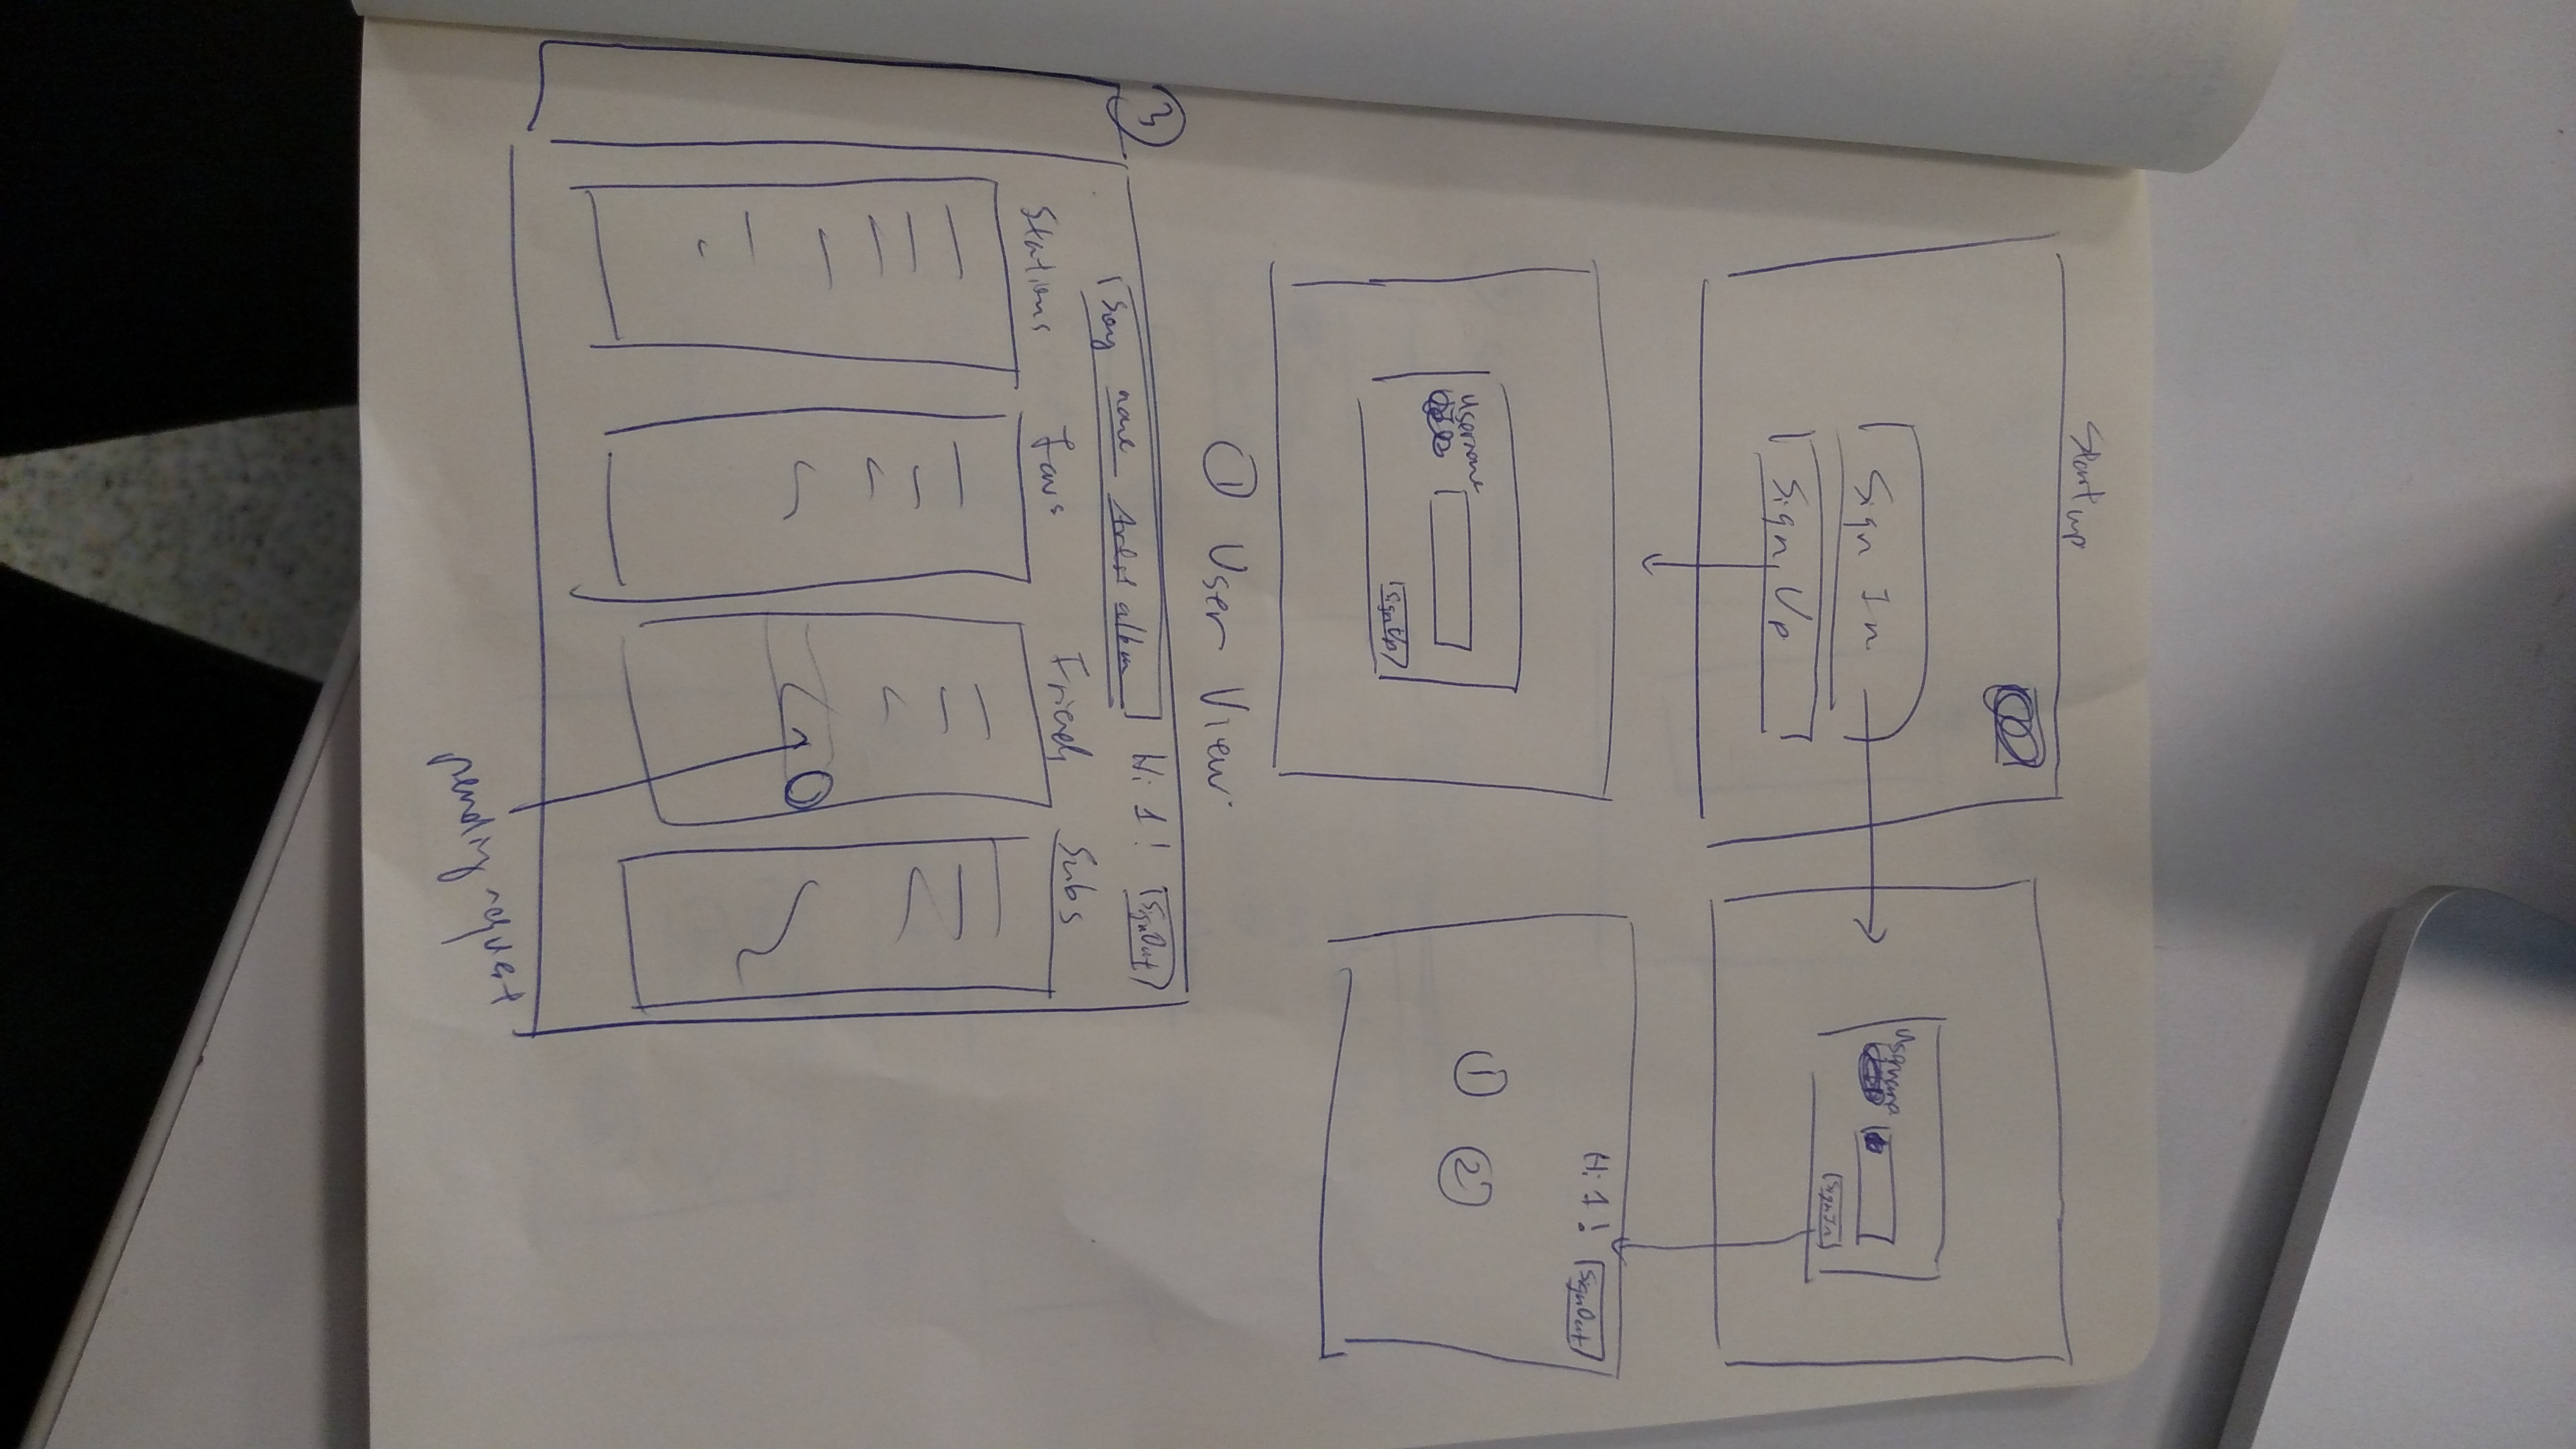 Startup
Sign In
Sign Up
Username
SignIn
Username
SignUp
Hi 1! SignOut
1 2
1 User View
3
Song name Artist album Hi 1! SignOut
Stations Favs Friends Subs
pending request